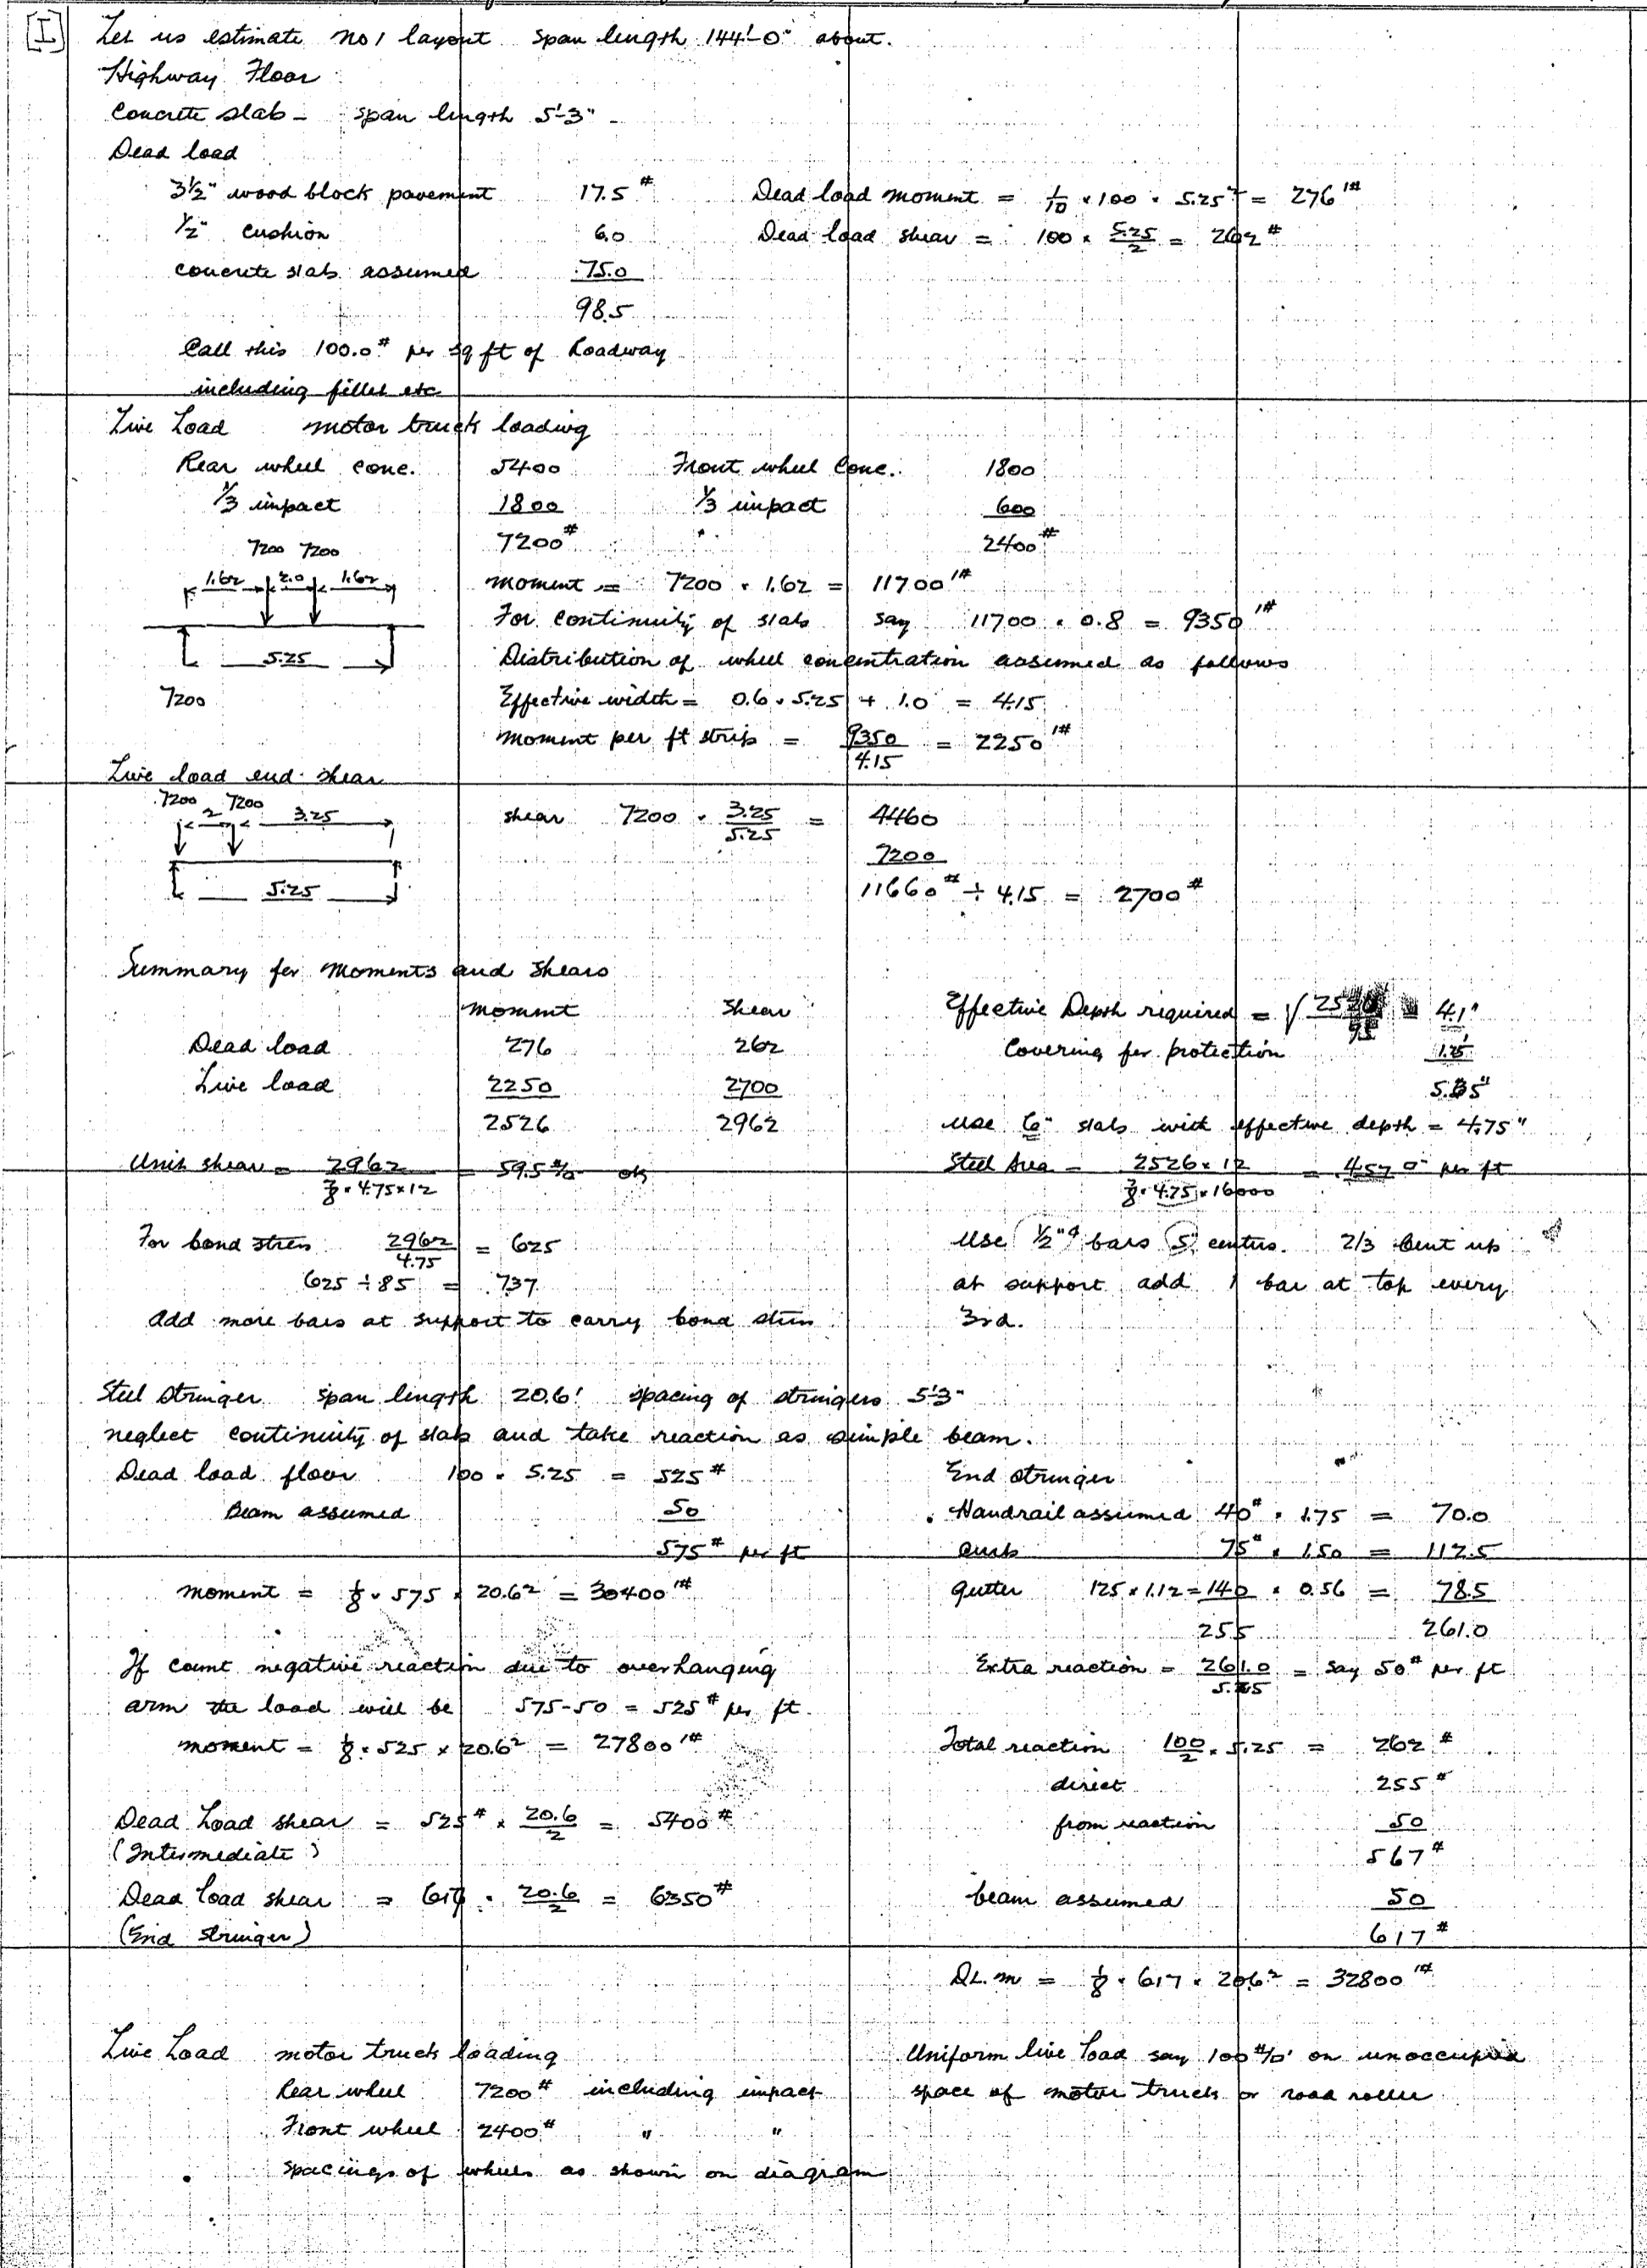 [I] Let us estimate no 1 layout span length 144'-0" about.
Highway Floor
Concrete slab - span length 5'-3"
Dead load
3½" wood block pavement 17.5#
½" cushion 6.0
concrete slab assumed 75.0
98.5
Call this 100.0# per sq ft of Roadway
including fillet etc
Dead load moment = 1/10 × 100 × 5.25² = 276'#
Dead load shear = 100 × 5.25/2 = 262#
Live Load motor truck loading
Rear wheel conc. 5400 Front wheel Conc. 1800
1/3 impact 1800 1/3 impact 600
7200# 2400#
7200 7200
1.62 2.0 1.62
5.25
7200
moment = 7200 × 1.62 = 11700'#
For continuity of slab say 11700 × 0.8 = 9350'#
Distribution of wheel concentration assumed as follows
Effective width = 0.6 × 5.25 + 1.0 = 4.15
moment per ft strip = 9350/4.15 = 2250'#
Live load end shear
7200 7200
2 3.25
5.25
shear 7200 × 3.25/5.25 = 4460
7200
11660# ÷ 4.15 = 2700#
Summary for Moments and Shears
Moment Shear
Dead load 276 262
Live load 2250 2700
2526 2962
Unit shear = 2962/(7/8 × 4.75 × 12) = 59.5 #/□" ok
For bond stress 2962/4.75 = 625
625 ÷ 85 = 7.37
Add more bars at support to carry bond stress
Effective Depth required = 4.1"
Covering for protection 1.25
Use 6" slab with effective depth = 4.75"
Steel Area = 2526 × 12/(7/8 × 4.75 × 16000 = .457 □" per ft
Use ½"φ bars 5" centers. 2/3 bent up
at support add 1 bar at top every
3rd.
Steel Stringer span length 20.6' spacing of stringers 5'-3"
neglect continuity of slab and take reaction as simple beam.
Dead load floor 100 × 5.25 = 525#
Beam assumed 50
575# per ft
moment = 1/8 × 575 × 20.6² = 30400'#
If count negative reaction due to overhanging
arm the load will be 575-50 = 525# per ft.
moment = 1/8 × 525 × 20.6² = 27800'#
Dead Load shear = 525# × 20.6/2 = 5400#
(Intermediate)
Dead Load shear = 617 × 20.6/2 = 6350#
(End stringer)
End stringer
Handrail assumed 40# × 1.75 = 70.0
Curb 75# × 1.50 = 112.5
gutter 125 × 1.12 = 140 × 0.56 = 78.5
255 261.0
Extra reaction = 261.0/5.25 = say 50# per ft
Total reaction 100/2 × 5.25 = 262#
direct 255#
from reaction 50
567#
beam assumed 50
617#
DL. m = 1/8 × 617 × 20.6² = 32800'#
Live Load motor truck loading
Rear wheel 7200# including impact
Front wheel 2400# " "
spacings of wheels as shown on diagram
Uniform live load say 100 #/□' on unoccupied
space of motor truck or road roller